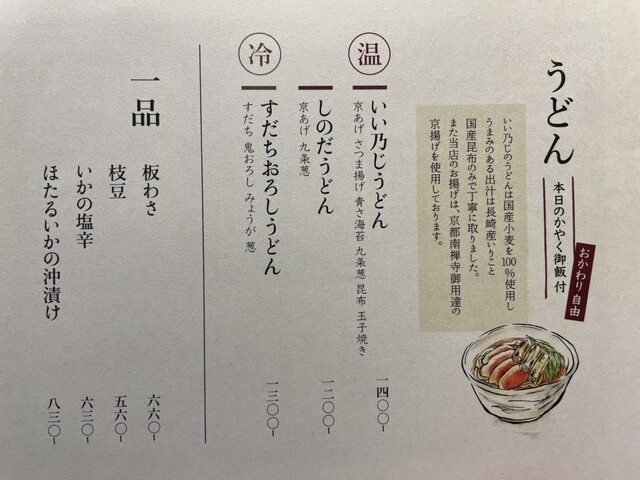 うどん
本日のかやく御飯付
おかわり自由
いい乃じのうどんは国産小麦を100%使用し
うまみのある出汁は長崎産いりこと
国産昆布のみで丁寧に取りました。
また当店のお揚げは、京都南禅寺御用達の
京揚げを使用しております。
温
いい乃じうどん
京あげ さつま揚げ 青さ海苔 九条葱 昆布 玉子焼き
一四〇〇-
しのだうどん
京あげ 九条葱
一二〇〇-
冷
すだちおろしうどん
すだち 鬼おろし みょうが 葱
一三〇〇-
一品
板わさ
六六〇-
枝豆
五六〇-
いかの塩辛
六三〇-
ほたるいかの沖漬け
八三〇-